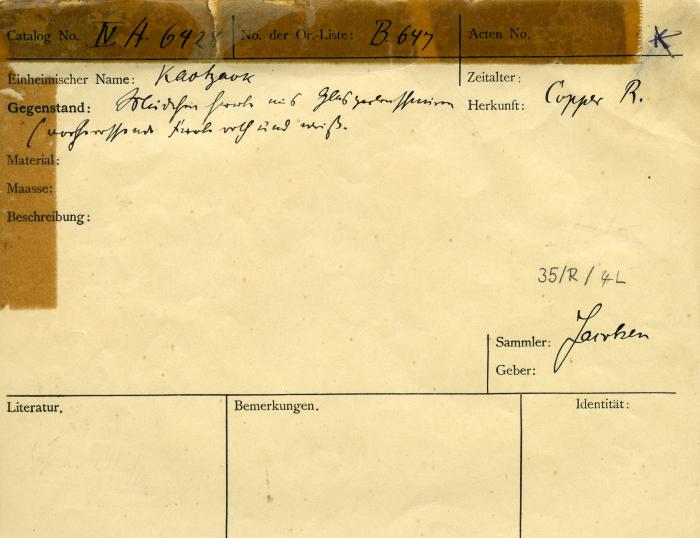 Catalog No. IV A. 6428 No. der Or.-Liste: B. 647 Acten No. K
Einheimischer Name: Zeitalter:
Gegenstand: Mädchen aus Herkunft: Copper R.
( Farbe roth und weiß.
Material:
Maasse:
Beschreibung:
35/R / 4L
Sammler: Jacobsen
Geber:
Literatur. Bemerkungen. Identität: